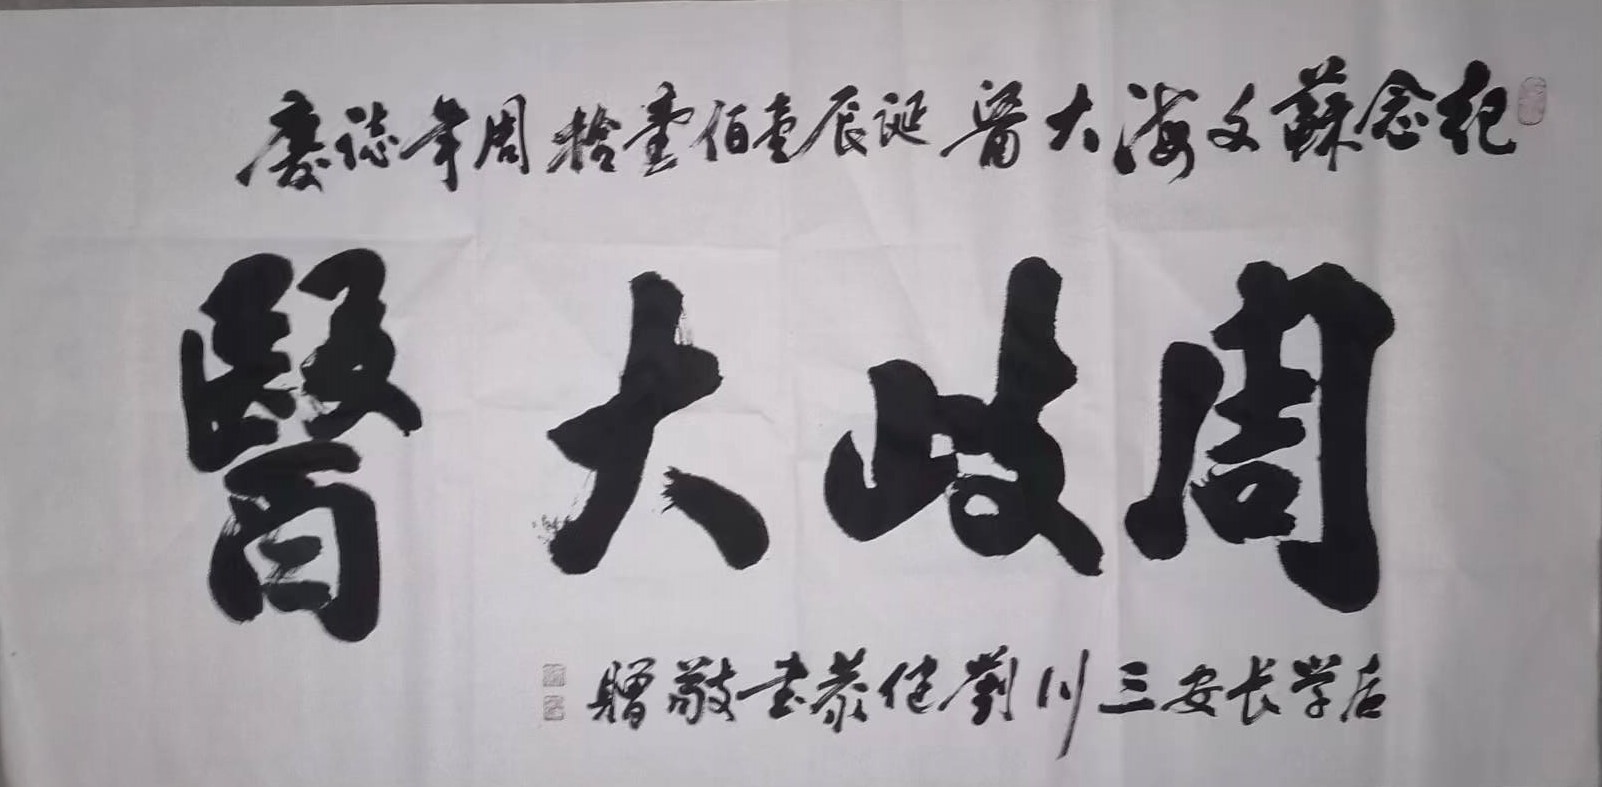 紀念蘇文海大醫誕辰壹佰壹拾周年誌慶
周岐大醫
后学长安三川劉健恭书敬贈